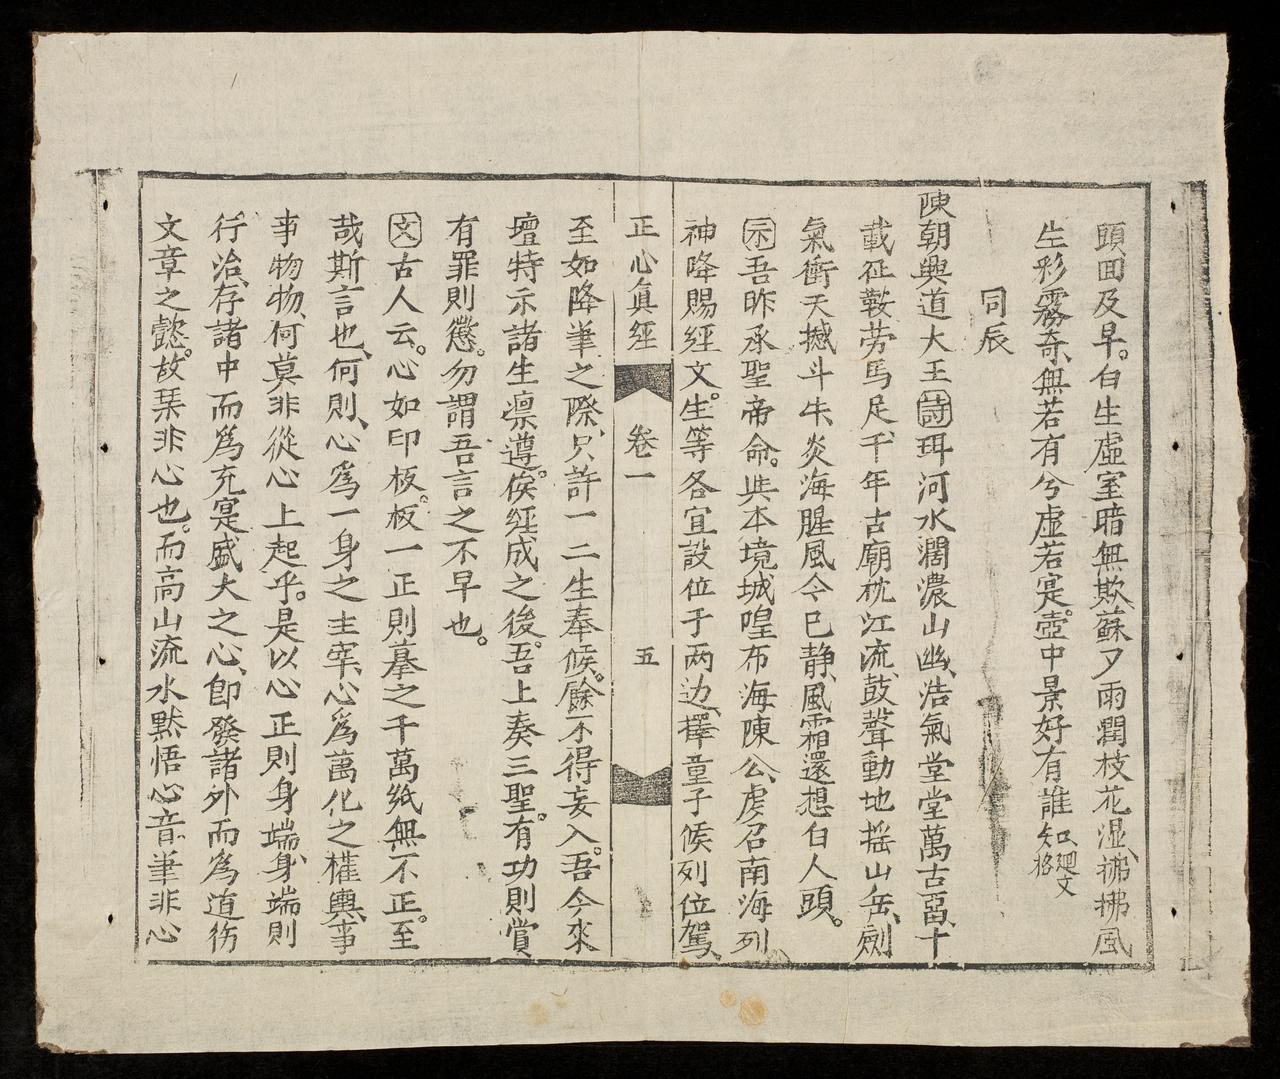 頭回及早。白生虛室暗無欺、蘇夕雨潤枝花湿、拂拂風
生彩霧奇、無若有兮虚若寔。壺中景好有誰知、廻文格
同辰
陳朝興道大王詩珥河水濶濃山幽、浩氣堂堂萬古留、十
載征鞍劳馬足、千年古廟枕江流、鼓聲動地摇山岳、劍
氣衝天撼斗牛、炎海腥風今已静、風霜還想白人頭。
示吾昨承聖帝命。與本境城隍布海陳公、虔召南海列
神降賜經文。生等各宜設位于両边、擇童子候列位駕、
正心真經 卷一 五
至如降筆之際、只許一二生奉候。餘不得妄入。吾今來
壇特示諸生凛遵。俟經成之後。吾上奏三聖。有功則賞
有罪則懲。勿謂吾言之不早也。
文古人云。心如印板。板一正則摹之千萬紙無不正。至
哉斯言也、何則、心爲一身之主宰、心爲萬化之權輿、事
事物物、何莫非從心上起乎。是以心正則身端、身端則
行治、存諸中而爲充寔盛大之心、即發諸外而爲道徳
文章之懿。故琹非心也。而高山流水默悟心音、筆非心